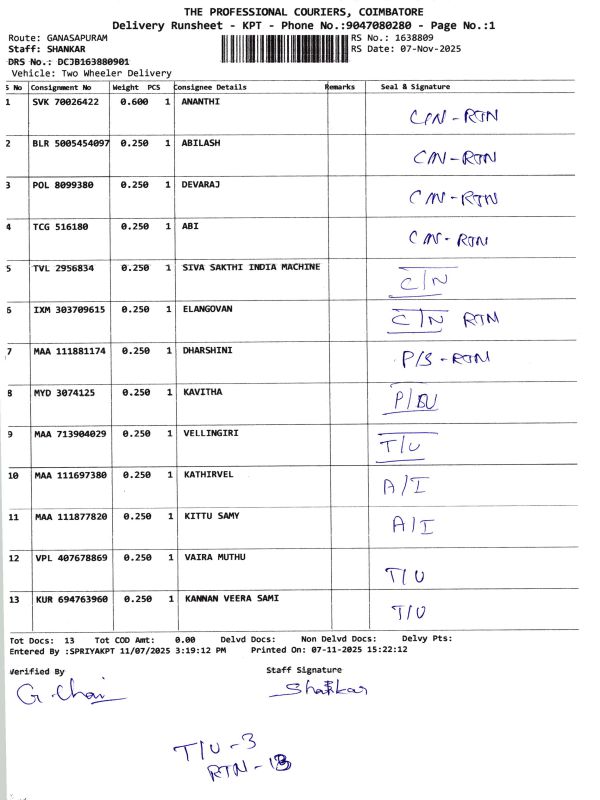 THE PROFESSIONAL COURIERS, COIMBATORE
Delivery Runsheet - KPT - Phone No.:9047080280 - Page No.:1
Route: GANASAPURAM RS No.: 1638809
Staff: SHANKAR RS Date: 07-Nov-2025
DRS No.: DCJB163880901
Vehicle: Two Wheeler Delivery
S No Consignment No Weight PCS Consignee Details Remarks Seal & Signature
1 SVK 70026422 0.600 1 ANANTHI C/N-RTN
2 BLR 5005454097 0.250 1 ABILASH C/N-RTN
3 POL 8099380 0.250 1 DEVARAJ C/N-RTN
4 TCG 516180 0.250 1 ABI C/N-RTN
5 TVL 2956834 0.250 1 SIVA SAKTHI INDIA MACHINE C/N
6 IXM 303709615 0.250 1 ELANGOVAN C/N RTN
7 MAA 111881174 0.250 1 DHARSHINI P/S-RTN
8 MYD 3074125 0.250 1 KAVITHA
9 MAA 713904029 0.250 1 VELLINGIRI T/U
10 MAA 111697380 0.250 1 KATHIRVEL A/I
11 MAA 111877820 0.250 1 KITTU SAMY A/I
12 VPL 407678869 0.250 1 VAIRA MUTHU T/U
13 KUR 694763960 0.250 1 KANNAN VEERA SAMI T/U
Tot Docs: 13 Tot COD Amt: 0.00 Delvd Docs: Non Delvd Docs: Delvy Pts:
Entered By :SPRIYAKPT 11/07/2025 3:19:12 PM Printed On: 07-11-2025 15:22:12
Verified By Staff Signature
G. Chai Shankar
T/U-3
RTN-